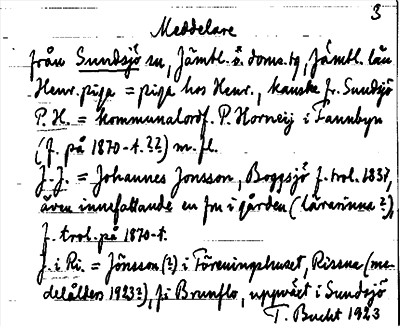 3
Meddelare
från Sundsjö sn, Jämtl. ö. doms. tg, Jämtl. län
Henr. piga = piga hos Henr., kanske fr. Sundsjö
P. H. = kommunalordf. P. Horneij i Fannbyn
(f. på 1870-t. ??) m. fl.
J. J. = Johannes Jonsson, Boggsjö f. trol. 1837,
även innefattande en fru i gården (lärarinna?),
f. trol. på 1870-t.
J. i Ri. = Jönsson (?) i Föreningshuset, Rissna (me-
delålders 1923?), f. i Brunflo, uppväxt i Sundsjö
T. Bucht 1923